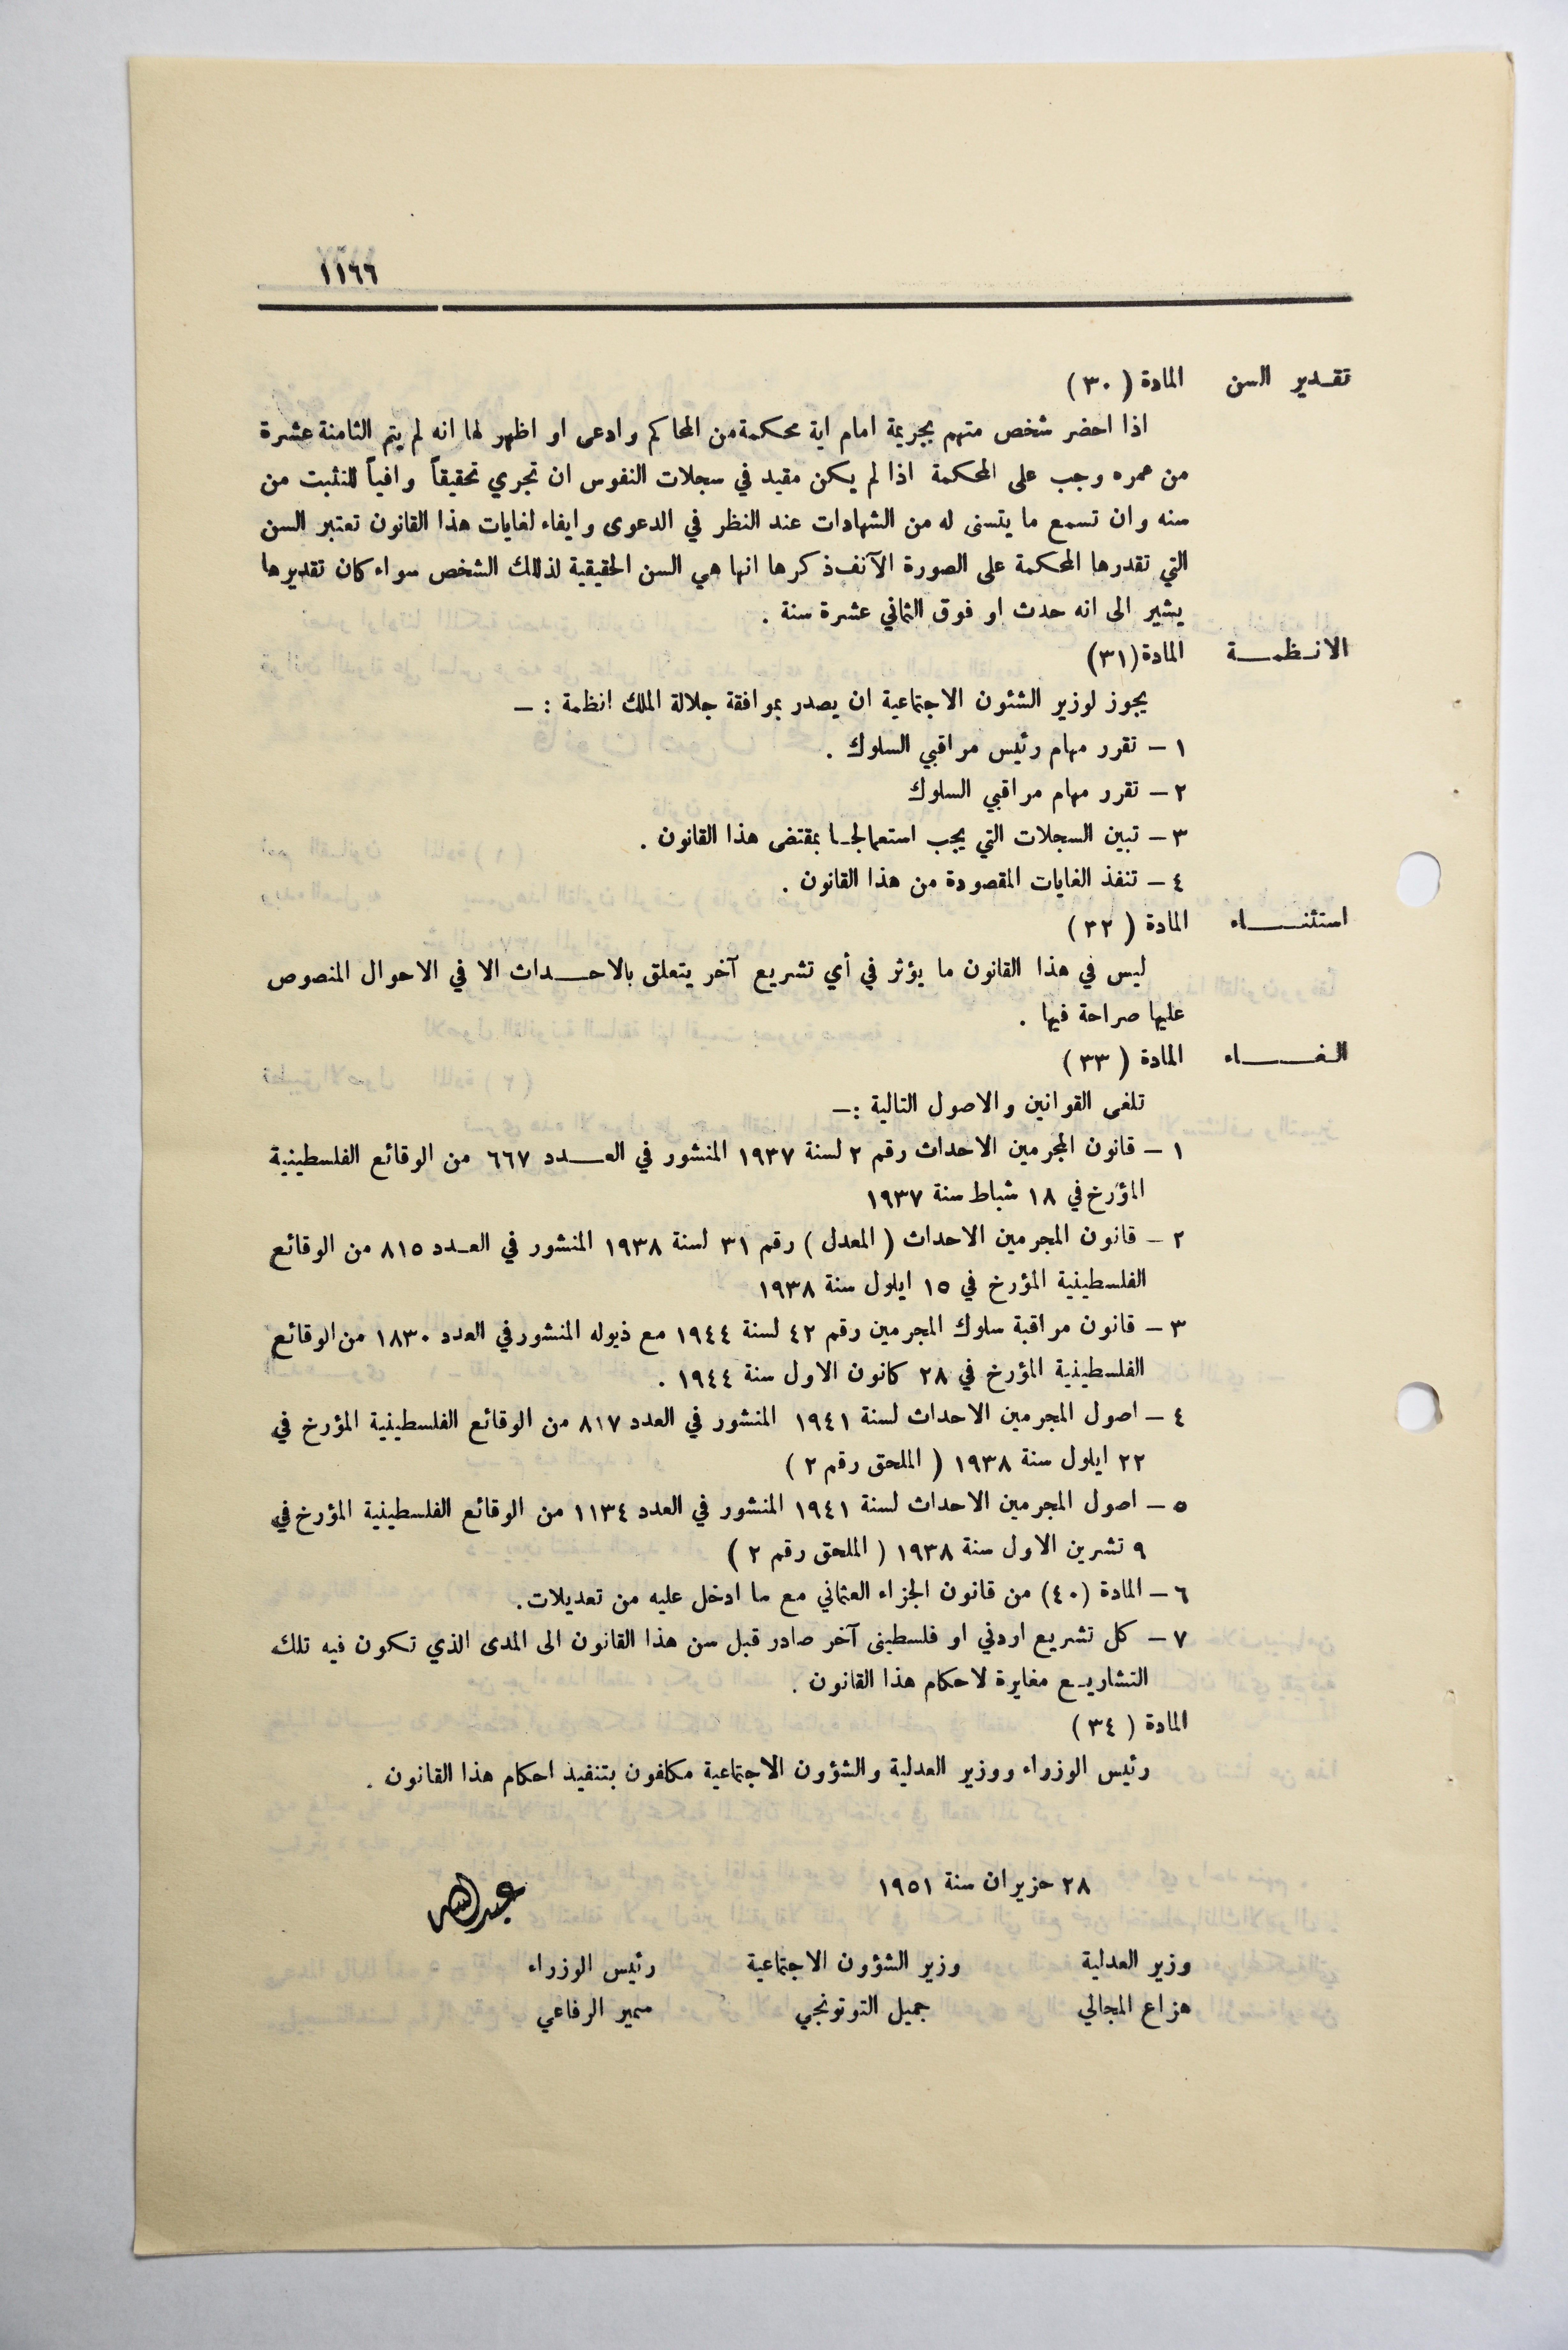 ١١٦٦
تقدير السن المادة ( ٣٠ )
اذا احضر شخص متهم بجريمة امام اية محكمة من المحاكم وادعى او اظهر لها انه لم يتم الثامنة عشرة
من عمره وجب على المحكمة اذا لم يكن مقيد في سجلات النفوس ان تجري تحقيقاً وافياً للتثبت من
سنه وان تسمع ما يتسنى له من الشهادات عند النظر في الدعوى وايفاء لغايات هذا القانون تعتبر السن
التي تقدرها المحكمة على الصورة الآنف ذكرها انها هي السن الحقيقية لذلك الشخص سواء كان تقديرها
يشير الى انه حدث او فوق الثماني عشرة سنة .
الانظمة المادة (٣١)
يجوز لوزير الشئون الاجتماعية ان يصدر بموافقة جلالة الملك انظمة : —
١ — تقرر مهام رئيس مراقبي السلوك .
٢ — تقرر مهام مراقبي السلوك
٣ — تبين السجلات التي يجب استعمالها بمقتضى هذا القانون .
٤ — تنفذ الغايات المقصودة من هذا القانون .
استثناء المادة ( ٣٢ )
ليس في هذا القانون ما يؤثر في أي تشريع آخر يتعلق بالاحداث الا في الاحوال المنصوص
عليها صراحة فيها .
الغاء المادة ( ٣٣ )
تلغى القوانين والاصول التالية :—
١ — قانون المجرمين الاحداث رقم ٢ لسنة ١٩٣٧ المنشور في العدد ٦٦٧ من الوقائع الفلسطينية
المؤرخ في ١٨ شباط سنة ١٩٣٧
٢ — قانون المجرمين الاحداث ( المعدل ) رقم ٣١ لسنة ١٩٣٨ المنشور في العدد ٨١٥ من الوقائع
الفلسطينية المؤرخ في ١٥ ايلول سنة ١٩٣٨
٣ — قانون مراقبة سلوك المجرمين رقم ٤٢ لسنة ١٩٤٤ مع ذيوله المنشور في العدد ١٨٣٠ من الوقائع
الفلسطينية المؤرخ في ٢٨ كانون الاول سنة ١٩٤٤ .
٤ — اصول المجرمين الاحداث لسنة ١٩٤١ المنشور في العدد ٨١٧ من الوقائع الفلسطينية المؤرخ في
٢٢ ايلول سنة ١٩٣٨ ( الملحق رقم ٢ )
٥ — اصول المجرمين الاحداث لسنة ١٩٤١ المنشور في العدد ١١٣٤ من الوقائع الفلسطينية المؤرخ في
٩ تشرين الاول سنة ١٩٣٨ ( الملحق رقم ٢ )
٦ — المادة (٤٠) من قانون الجزاء العثماني مع ما ادخل عليه من تعديلات.
٧ — كل تشريع اردني او فلسطينى آخر صادر قبل سن هذا القانون الى المدى الذي تكون فيه تلك
التشاريع مغايرة لاحكام هذا القانون .
المادة ( ٣٤ )
رئيس الوزراء ووزير العدلية والشؤون الاجتماعية مكلفون بتنفيذ احكام هذا القانون .
٢٨ حزيران سنة ١٩٥١
عبدالله
وزير العدلية وزير الشؤون الاجتماعية رئيس الوزراء
هزاع المجالي جميل التوتونجي سمير الرفاعي